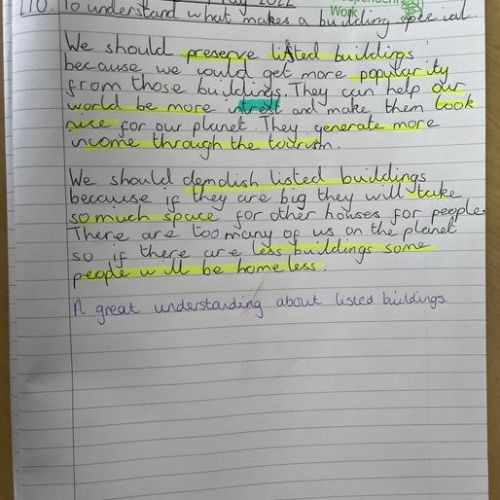 May 2022
Independent
Work
LO. To understand what makes a building special.
We should preserve listed buildings
because we could get more popularity
from those buildings. They can help our
world be more intrest and make them look
nice for our planet. They generate more
income through the tourism.
We should demolish listed buildings
because if they are big they will take
so much space for other houses for people.
There are too many of us on the planet
so if there are less buildings some
people will be homeless.
A great understanding about listed buildings